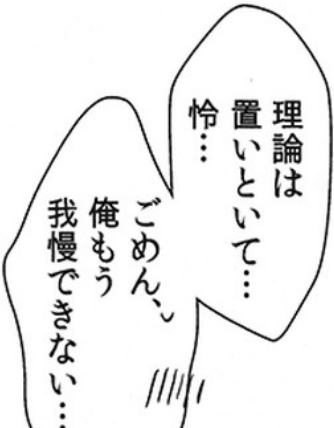 理論は
置いといて…
怜…
ごめん、
俺もう
我慢できない…